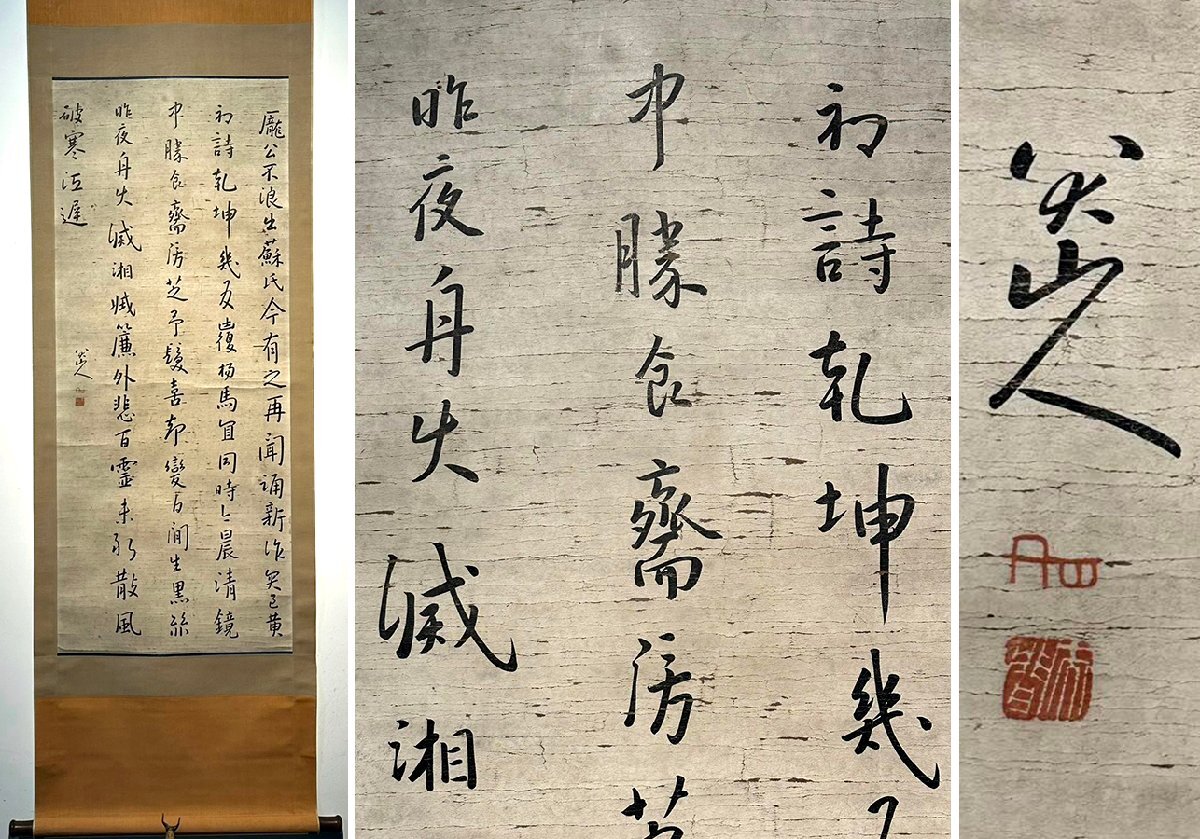 龐公不浪出蘇氏今有之再聞誦新作突過黃
初詩乾坤幾反覆楊馬宜同時今晨清鏡
中勝食齋房芝予髮喜却變白間生黑絲
昨夜舟火滅湘娥簾外悲百靈未敢散風
破寒江遲
八大山人
初詩乾坤幾
中勝食齋房芝
昨夜舟火滅湘
八大山人